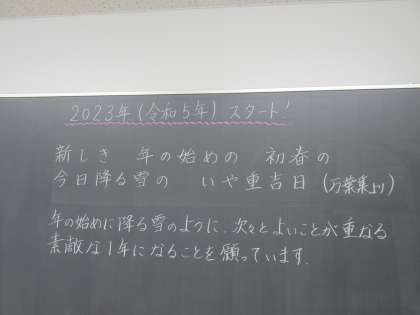 2023年(令和5年) スタート!
新しき 年の始めの 初春の
今日降る雪の いや重吉日 (万葉集より)
年の始めに降る雪のように、次々とよいことが重なる
素敵な1年になることを願っています.